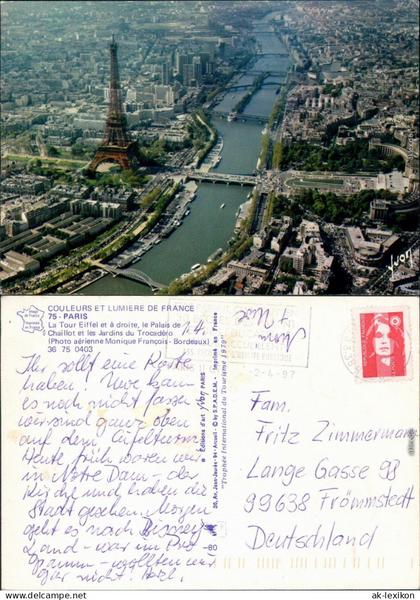 yvon
COULEURS ET LUMIERE DE FRANCE
75 - PARIS
La Tour Eiffel et à droite, le Palais de
Chaillot et les Jardins du Trocadéro
(Photo aérienne Monique François - Bordeaux)
36 75 0403
1.4.
Mom
+ Uwe
-2-4-97
Ihr sollt eine Karte
haben! Uwe kann
es noch nicht fassen
wir sind ganz oben
auf dem Eifelturm.
Heute früh waren wir
in Notre Dam - der
Kirche und haben die
Stadt gesehen. Morgen
geht es nach Disney
Land - war im Pro-
gramm - wollten wir
gar nicht!
Editions d'art yvon PARIS
35, Av. Jean-Jaurès - 94 - Arcueil - © by S.P.A.D.E.M. - Imprimé en France
"Trophée International du Tourisme 1978"
-80
Fam.
Fritz Zimmermann
Lange Gasse 98
99638 Frömmstedt
Deutschland
© www.ak-lexikon.de
ak-lexikon